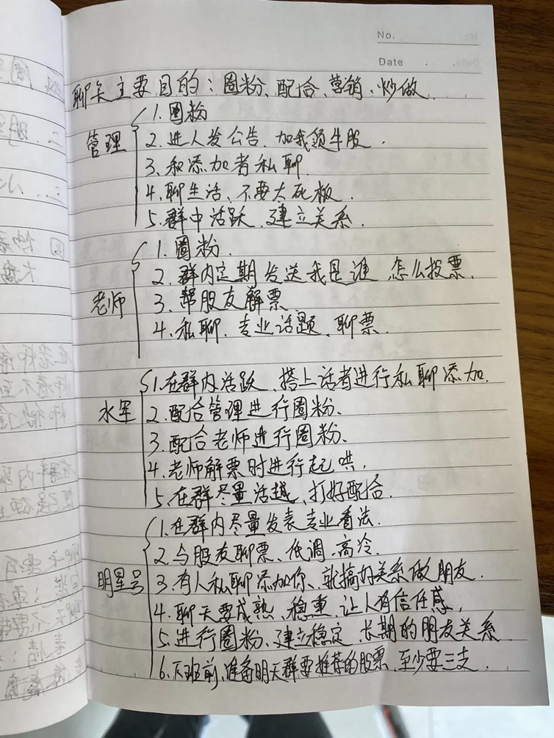 No.
Date
聊天主要目的：圈粉、配合、营销、炒做
管理
1.圈粉
2.进人发公告.加我领牛股.
3.和添加者私聊.
4.聊生活、不要太死板.
5.群中活跃.建立关系.
老师
1.圈粉.
2.群内定期发送我是谁 怎么投票.
3.帮股友解票
4.私聊.专业话题.聊票.
水军
1.在群内活跃.搭上话者进行私聊添加.
2.配合管理进行圈粉、
3.配合老师进行圈粉、
4.老师解票时进行起哄.
5.在群尽量活越、打好配合.
明星号
1.在群内尽量发表专业看法.
2.与股友聊票、低调.高冷.
3.有人私聊添加你、就搞好关系做朋友.
4.聊天要成熟.稳重.让人有信任感.
5.进行圈粉.建立稳定 长期的朋友关系
6.下班前.准备明天群要推荐的股票.至少要三支.